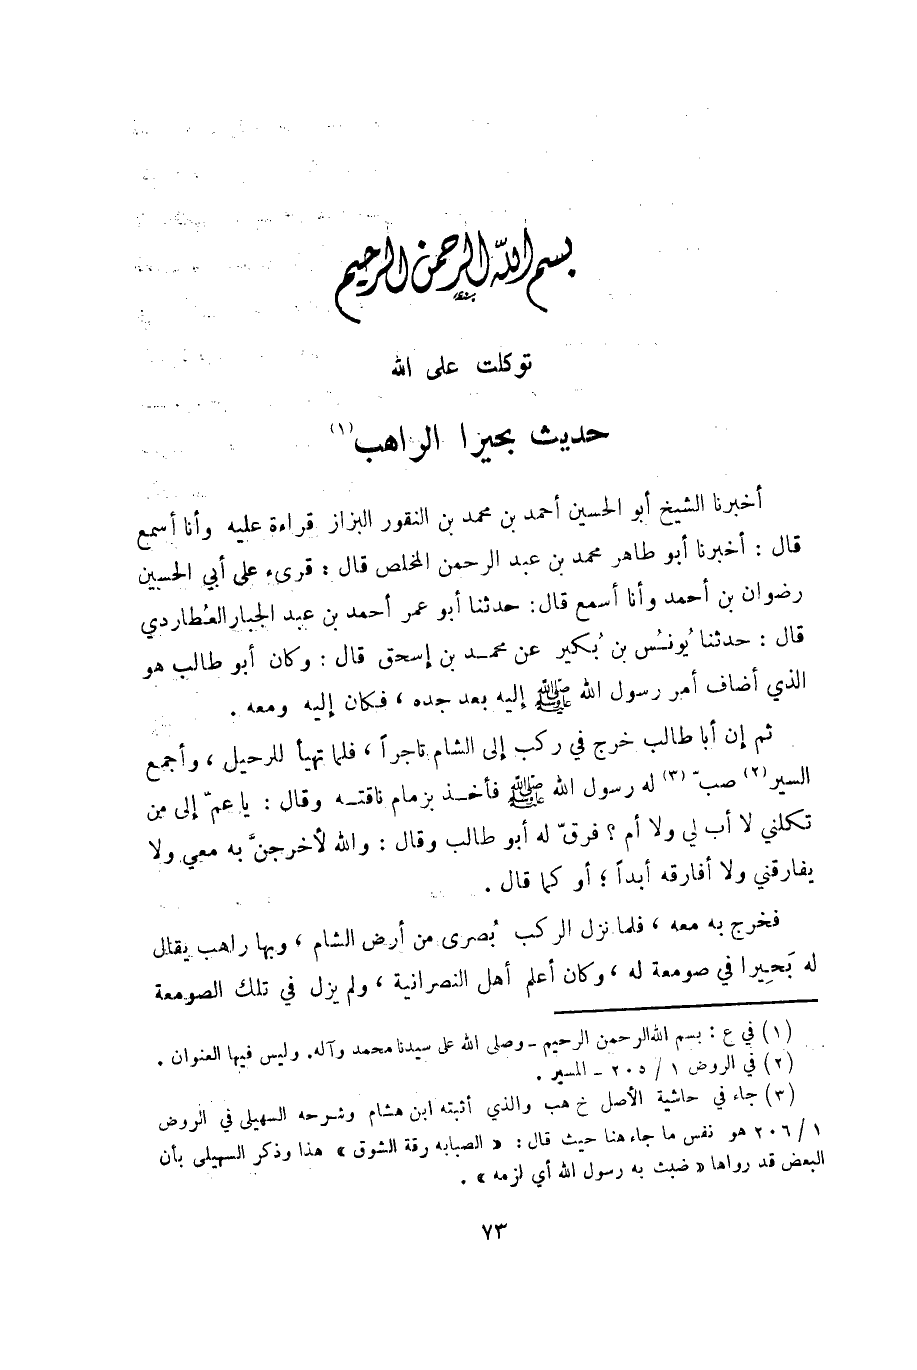 بسم الله الرحمن الرحيم
توكلت على الله
حديث بحيرا الراهب (١)
أخبرنا الشيخ أبو الحسين أحمد بن محمد بن النقور البزاز قراءة عليه وأنا أسمع
قال : أخبرنا أبو طاهر محمد بن عبد الرحمن المخلص قال : قرىء على أبي الحسين
رضوان بن أحمد وأنا أسمع قال : حدثنا أبو عمر أحمد بن عبد الجبار العُطاردي
قال : حدثنا يُونُس بن بُكير عن محمد بن إسحق قال : وكان أبو طالب هو
الذي أضاف أمر رسول الله ﷺ إليه بعد جده ، فكان إليه ومعه .
ثم إن أبا طالب خرج في ركب إلى الشام تاجراً ، فلما تهيأ للرحيل ، وأجمع
السير (٢) صبّ (٣) له رسول الله ﷺ فأخذ بزمام ناقته وقال : يا عمّ إلى من
تكلني لا أب لي ولا أم ؟ فرقّ له أبو طالب وقال : والله لأخرجنَّ به معي ولا
يفارقني ولا أفارقه أبداً ؛ أو كما قال .
فخرج به معه ، فلما نزل الركب بُصرى من أرض الشام ، وبها راهب يقال
له بَحِيرا في صومعة له ، وكان أعلم أهل النصرانية ، ولم يزل في تلك الصومعة
(١) في ع : بسم الله الرحمن الرحيم - وصلى الله على سيدنا محمد وآله. وليس فيها العنوان .
(٢) في الروض ١ / ٢٠٥ - المسير .
(٣) جاء في حاشية الأصل خ هب والذي أثبته ابن هشام وشرحه السهيلي في الروض
١ / ٢٠٦ هو نفس ما جاء هنا حيث قال : « الصبابه رقة الشوق » هذا وذكر السهيلي بأن
البعض قد رواها « ضبث به رسول الله أي لزمه » .
٧٣